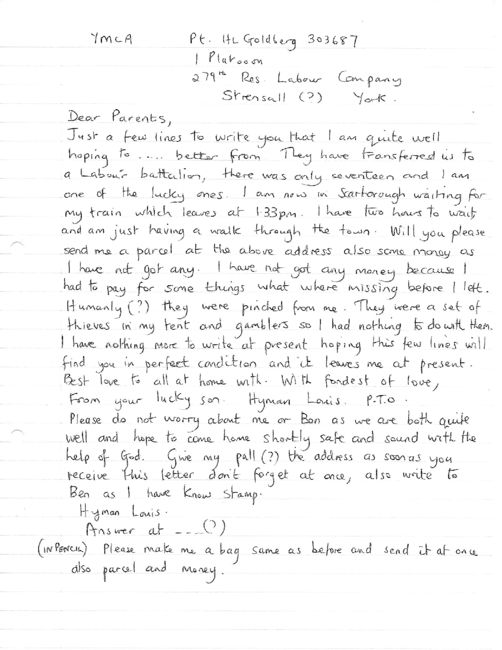 YMCA Pt. HL Goldberg 303687
1 Platooon
279th Res. Labour Company
Strensall (?) York.
Dear Parents,
Just a few lines to write you that I am quite well
hoping to .... better from They have transferred us to
a Labour battalion, there was only seventeen and I am
one of the lucky ones. I am now in Scarborough waiting for
my train which leaves at 1.33pm. I have two hours to wait
and am just having a walk through the town. Will you please
send me a parcel at the above address also some money as
I have not got any. I have not got any money because I
had to pay for some things what where missing before I left.
Humanly (?) they were pinched from me. They were a set of
thieves in my tent and gamblers so I had nothing to do with them.
I have nothing more to write at present hoping this few lines will
find you in perfect condition and it leaves me at present.
Best love to all at home with. With fondest of love,
From your lucky son. Hyman Louis. P.T.O.
Please do not worry about me or Ben as we are both quite
well and hope to come home shortly safe and sound with the
help of God. Give my pall (?) the address as soon as you
receive this letter don't forget at once, also write to
Ben as I have know stamp.
Hyman Louis.
Answer at ---- (?)
(IN PENCIL) Please make me a bag same as before and send it at once
also parcel and money.